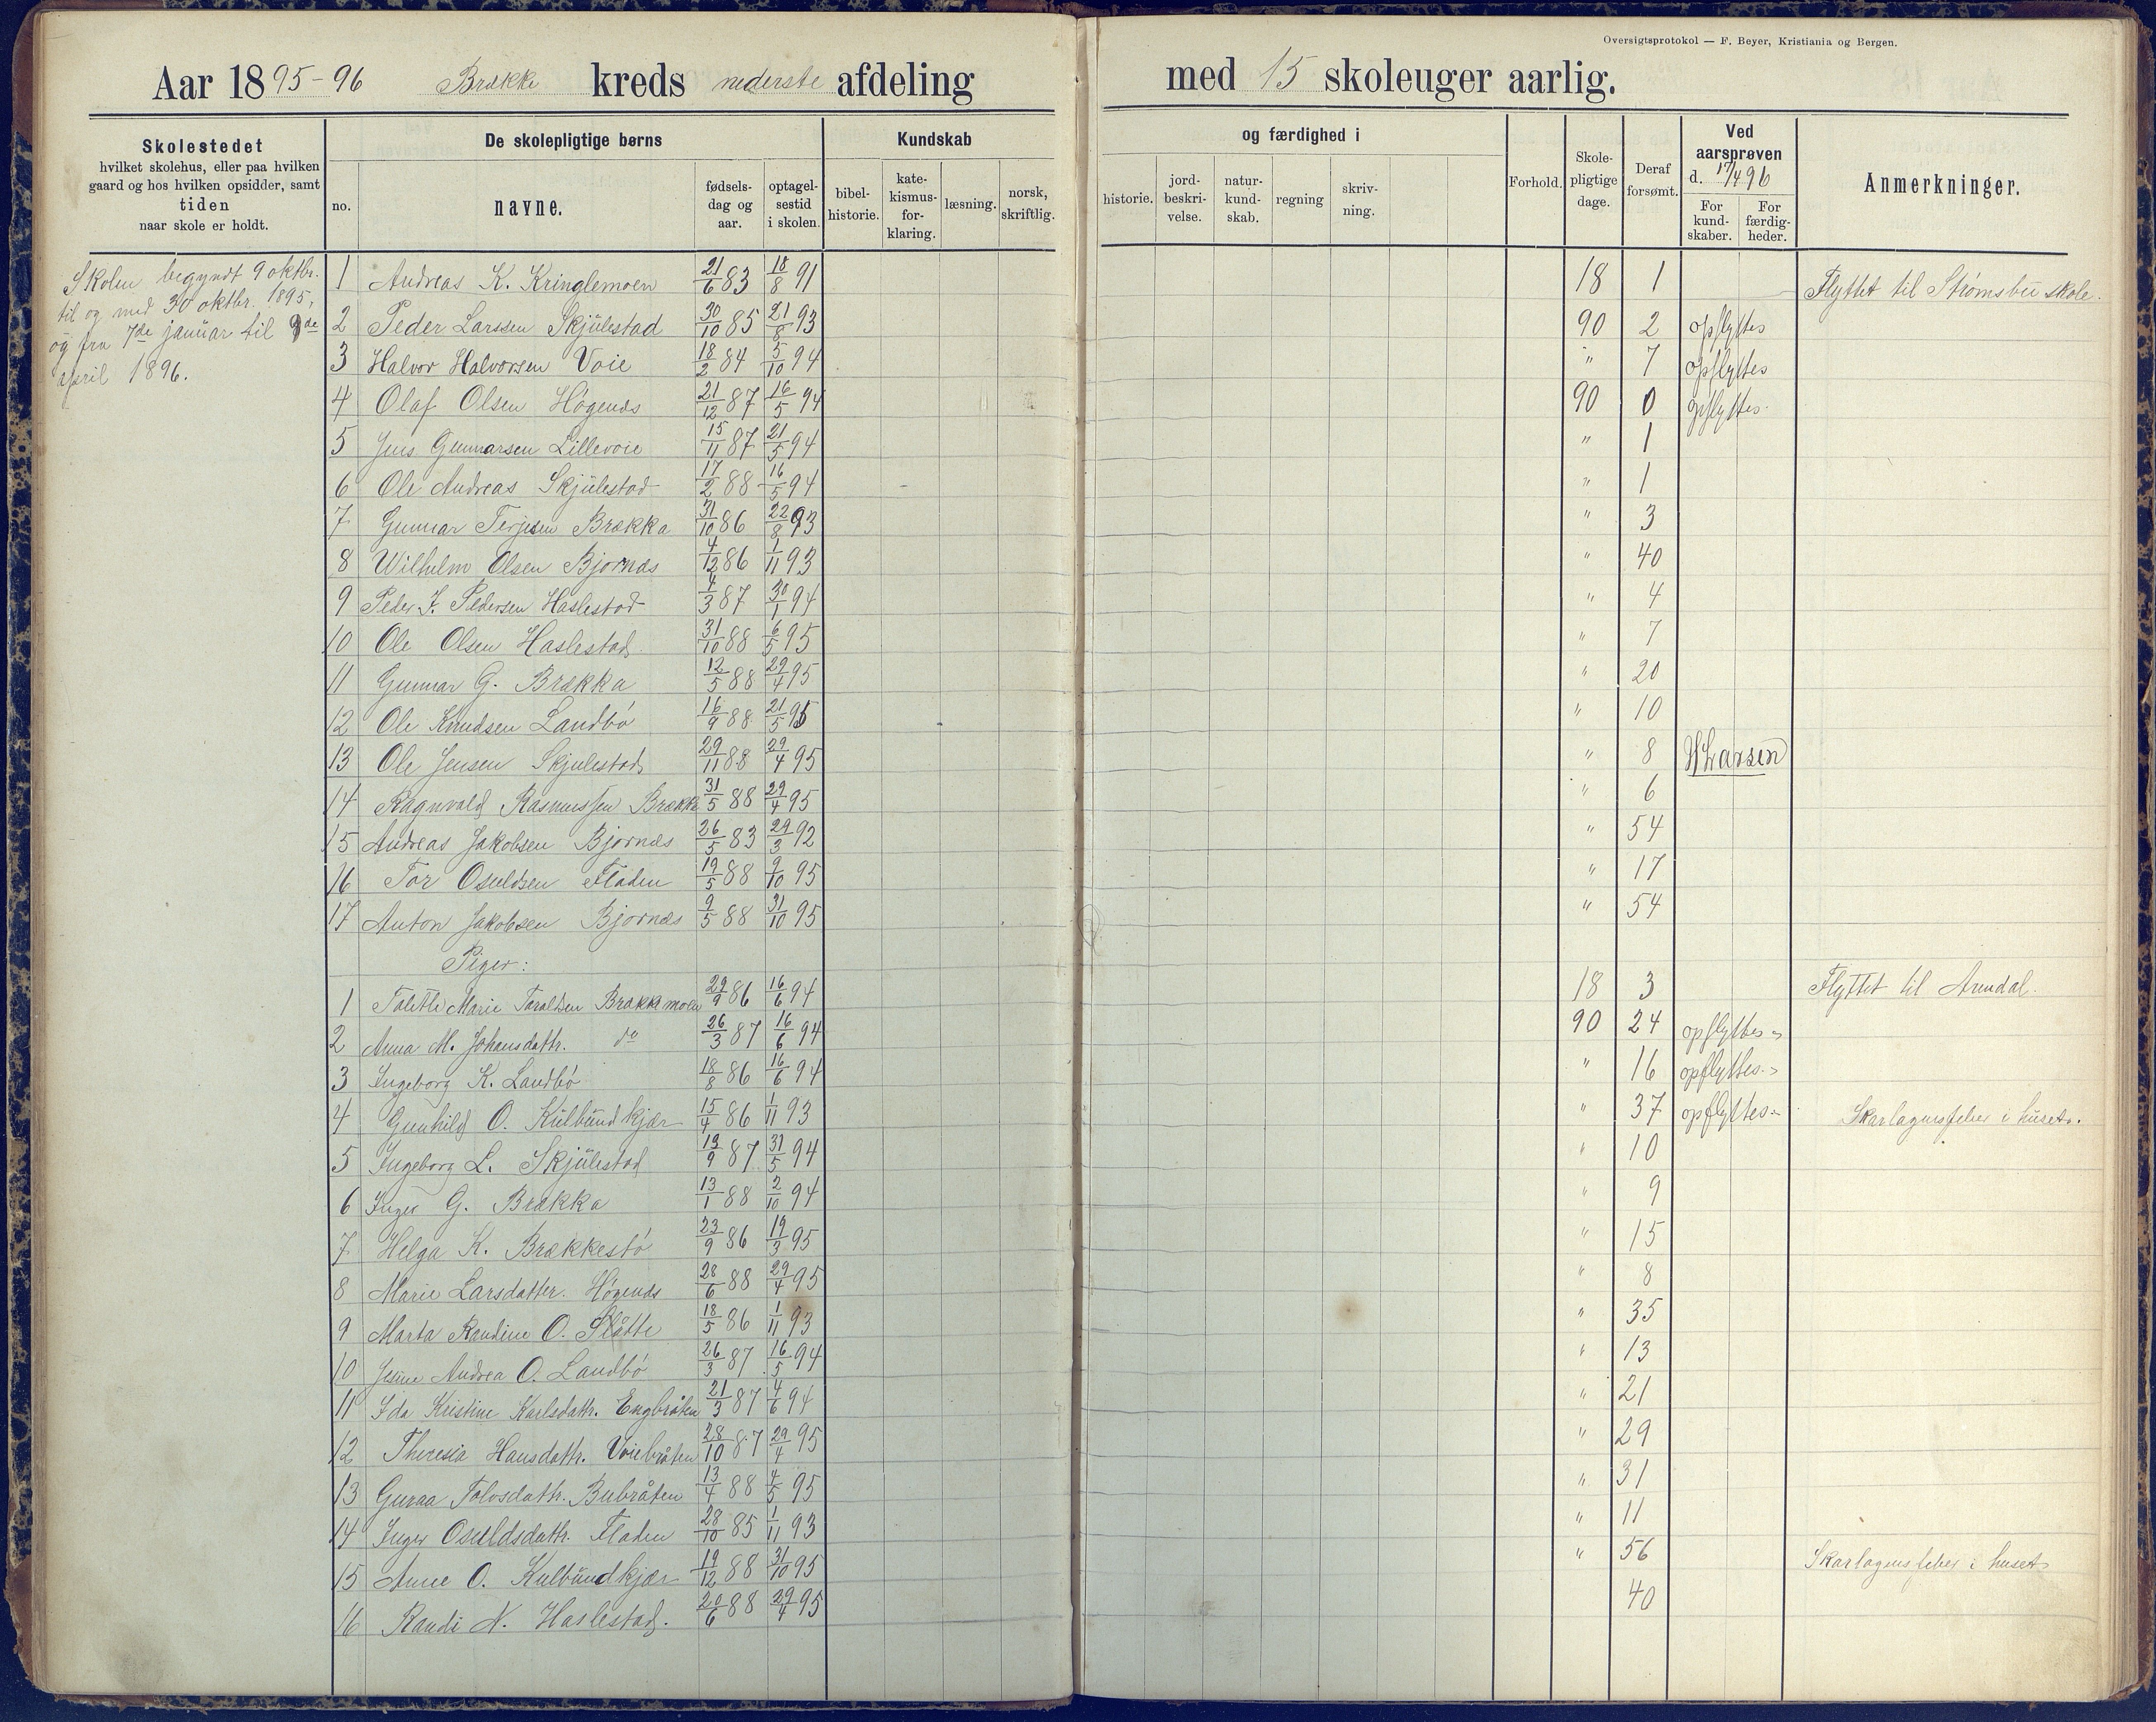 Oversigtsprotokol — F. Beyer, Kristiania og Bergen.
Aar 1895-96 Brække kreds nederste afdeling med 15 skoleuger aarlig.
Skolestedet
hvilket skolehus, eller paa hvilken
gaard og hos hvilken opsidder, samt
tiden
naar skole er holdt.
De skolepligtige børns
no.
navne.
fødsels-
dag og
aar.
optagel-
sestid
i skolen.
Kundskab
bibel-
historie.
kate-
kismus-
for-
klaring.
læsning.
norsk,
skriftlig.
og færdighed i
historie.
jord-
beskri-
velse.
natur-
kund-
skab.
regning
skriv-
ning.
Forhold.
Skole-
pligtige
dage.
Deraf
forsømt.
Ved
aarsprøven
d. 17/4 96
For
kund-
skaber.
For
færdig-
heder.
Anmerkninger.
Skolen begyndt 9 oktbr.
til og med 30 oktbr. 1895,
og fra 7de januar til 9de
april 1896.
1 Andreas K. Kringlemoen 21/6 83 18/8 91 18 1 Flyttet til Strømsbu skole.
2 Peder Larssen Skjulestad 30/10 85 21/8 93 90 2 opflyttes
3 Halvor Halvorsen Voie 18/2 84 5/10 94 " 7 opflyttes
4 Olaf Olsen Høgenæs 21/12 87 16/5 94 90 0 opflyttes.
5 Jens Gunnarsen Lillevoie 15/11 87 21/5 94 " 1
6 Ole Andreas Skjulestad 17/2 88 16/5 94 " 1
7 Gunnar Terjesen Brækka 31/10 86 22/8 93 " 3
8 Wilhelm Olsen Bjornæs 4/12 86 1/11 93 " 40
9 Peder J. Pedersen Haslestad 4/3 87 30/1 94 " 4
10 Ole Olsen Haslestad 31/10 88 6/5 95 " 7
11 Gunnar G. Brækka 12/5 88 29/4 95 " 20
12 Ole Knudsen Landbø 16/9 88 21/5 95 " 10
13 Ole Jensen Skjulestad 29/11 88 29/4 95 " 8 HLarsen
14 Ragnvald Rasmussen Brække 31/5 88 29/4 95 " 6
15 Andreas Jakobsen Bjornæs 26/5 83 29/3 92 " 54
16 Tor Osuldsen Fladen 19/5 88 9/10 95 " 17
17 Anton Jakobsen Bjornæs 9/5 88 31/10 95 " 54
Piger:
1 Marie Taraldsen Brækkemoen 29/9 86 16/6 94 18 3 Flyttet til Arendal.
2 Anna M. Johansdattr. do 26/3 87 16/6 94 90 24 opflyttes
3 Ingeborg K. Landbø 18/8 86 16/6 94 " 16 opflyttes.
4 Gunhild O. Kulbundkjær 15/4 86 1/11 93 " 37 opflyttes. Skarlagensfeber i huset.
5 Ingeborg L. Skjulestad 19/9 87 31/5 94 " 10
6 Inger G. Brækka 13/1 88 2/10 94 " 9
7 Helga K. Brækkestø 23/9 86 19/3 95 " 15
8 Marie Larsdatter. Høgenæs 28/6 88 29/4 95 " 8
9 Marta Randine O. Slåtte 18/5 86 1/11 93 " 35
10 Jesine Andrea O. Landbø 26/3 87 16/5 94 " 13
11 Ida Kristine Karlsdattr. Engbråten 21/3 87 4/6 94 " 21
12 Theresia Hansdattr. Voiebråten 28/10 87 29/4 95 " 29
13 Guraa Tolvsdattr. Bubråten 13/4 88 4/5 95 " 31
14 Inger Osuldsdattr. Fladen 28/10 85 1/11 93 " 11
15 Anne O. Kulbundkjær 19/12 88 31/10 95 " 56 Skarlagensfeber i huset
16 Randi N. Haslestad. 20/6 88 29/4 95 40